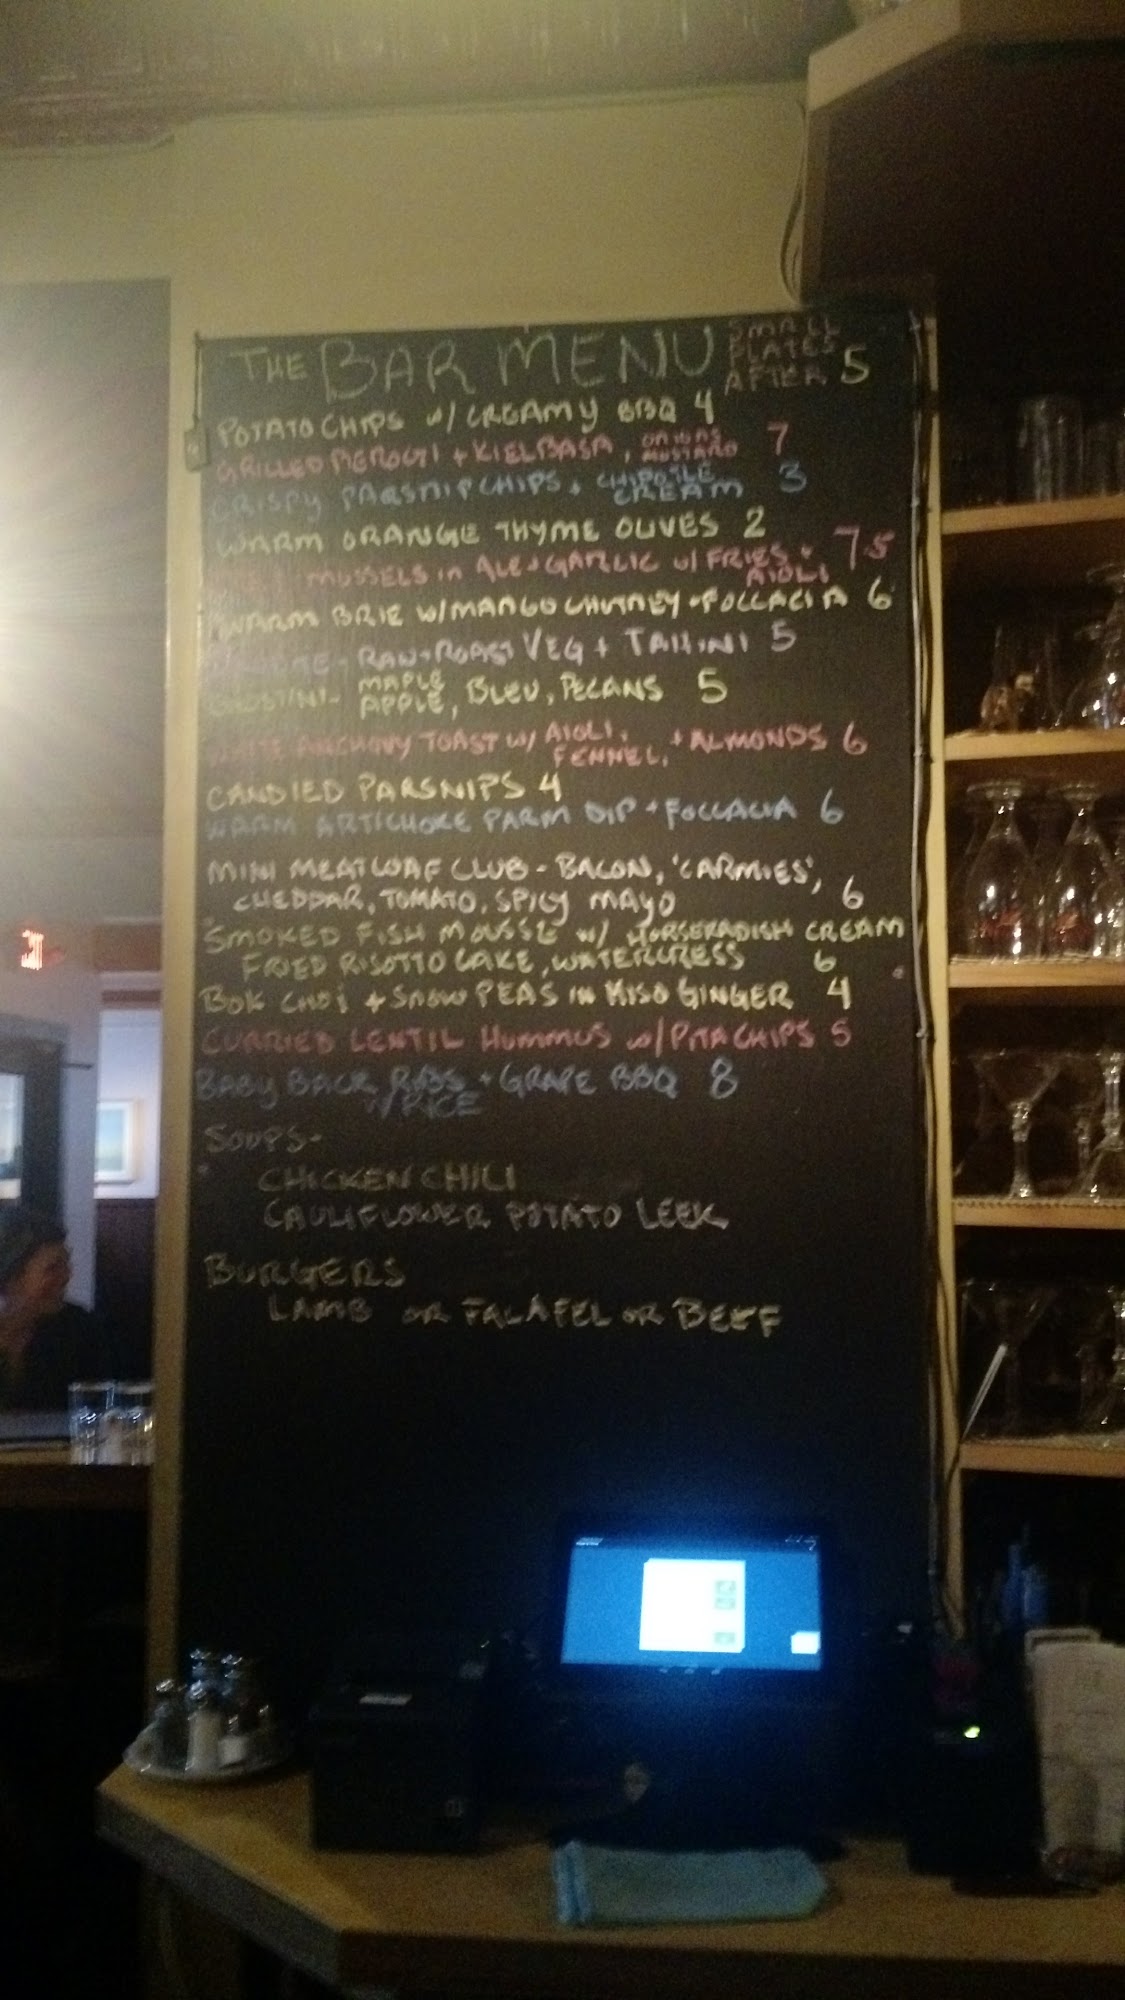 THE BAR MENU SMALL PLATES AFTER 5
POTATO CHIPS w/ CREAMY BBQ 4
GRILLED PIEROGI + KIELBASA, ONIONS MUSTARD 7
CRISPY PARSNIP CHIPS + CHIPOTLE CREAM 3
WARM ORANGE THYME OLIVES 2
MUSSELS in ALE + GARLIC w/ FRIES + AIOLI 7.5
WARM BRIE w/ MANGO CHUTNEY + FOCCACIA 6
- RAW + ROAST VEG + TAHINI 5
CROSTINI - MAPLE APPLE, BLEU, PECANS 5
WHITE ANCHOVY TOAST w/ AIOLI, FENNEL, + ALMONDS 6
CANDIED PARSNIPS 4
WARM ARTICHOKE PARM DIP + FOCCACIA 6
MINI MEATLOAF CLUB - BACON, 'CARMIES',
CHEDDAR, TOMATO, SPICY MAYO 6
SMOKED FISH MOUSSE w/ HORSERADISH CREAM
FRIED RISOTTO CAKE, WATERCRESS 6
BOK CHOI + SNOW PEAS IN MISO GINGER 4
CURRIED LENTIL HUMMUS w/ PITA CHIPS 5
BABY BACK RIBS + GRAPE BBQ 8
w/ RICE
SOUPS -
CHICKEN CHILI
CAULIFLOWER POTATO LEEK
BURGERS
LAMB OR FALAFEL OR BEEF